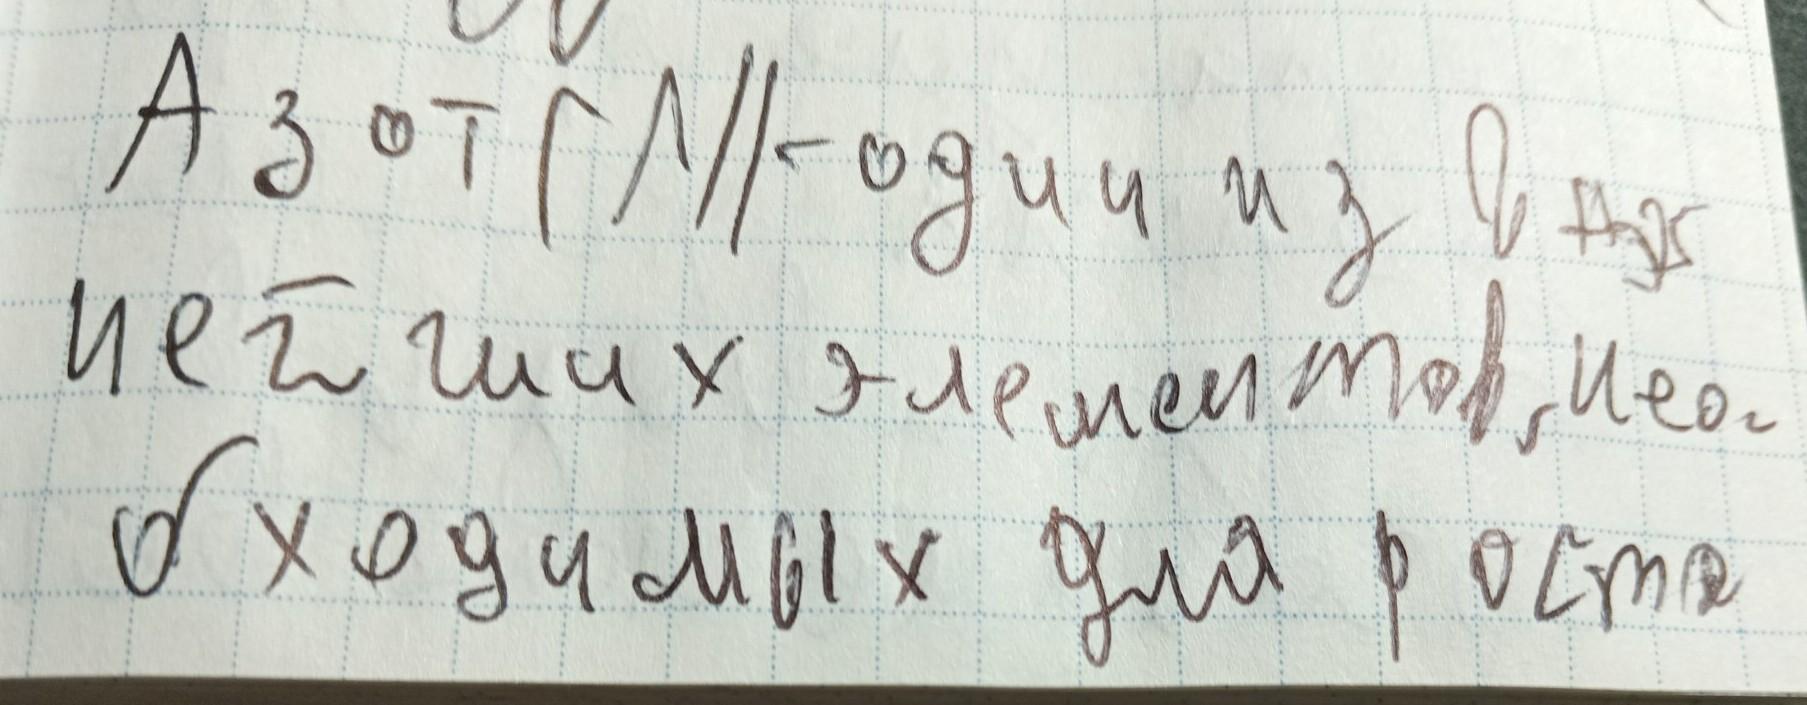 Азот (N) - один из важ
нейших элементов, нео-
бходимых для роста